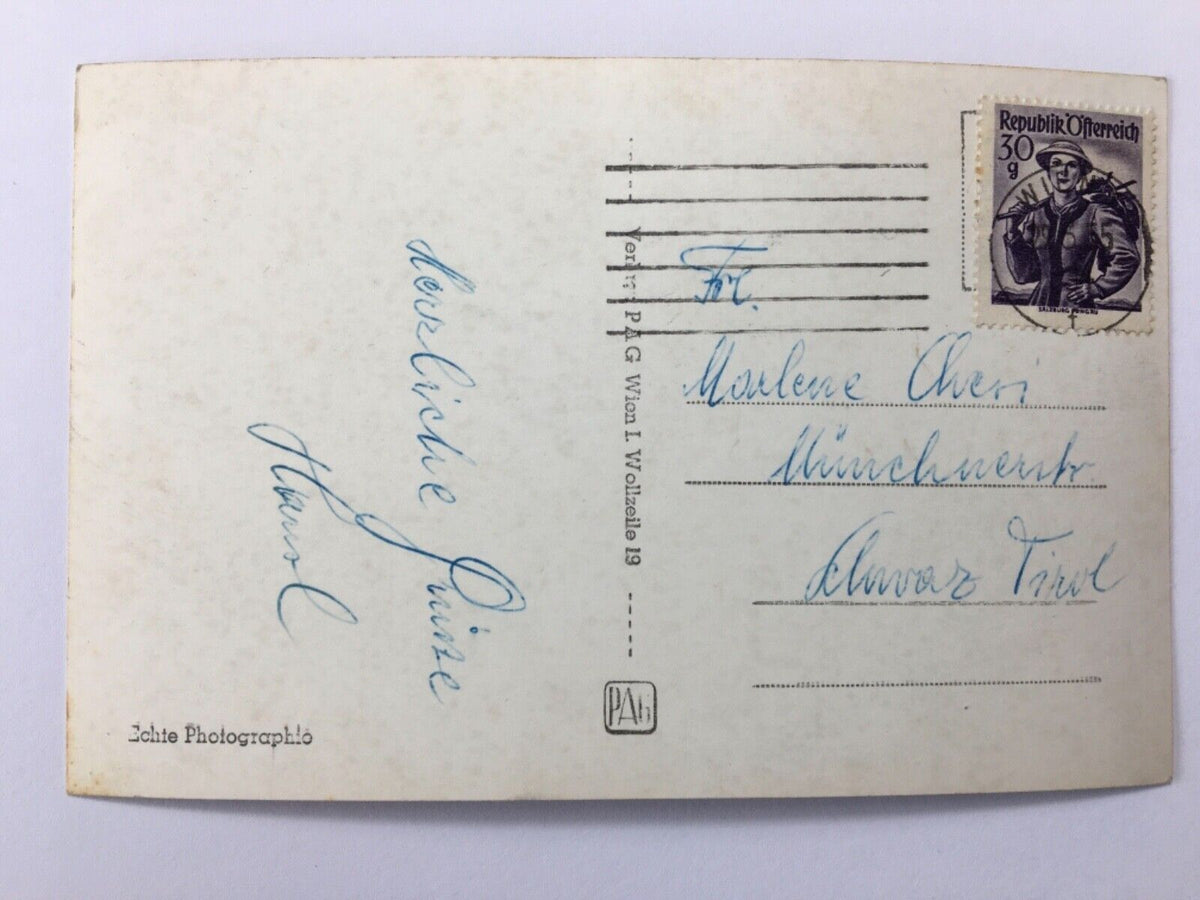 Herzliche Grüsse
Hansl
Echte Photographie
Verlag PAG Wien I. Wollzeile 19
PAG
Republik Österreich
30
g
WIEN
SALZBURG PONGAU
Frl.
Marlene
Münchnerstr.
Schwaz Tirol